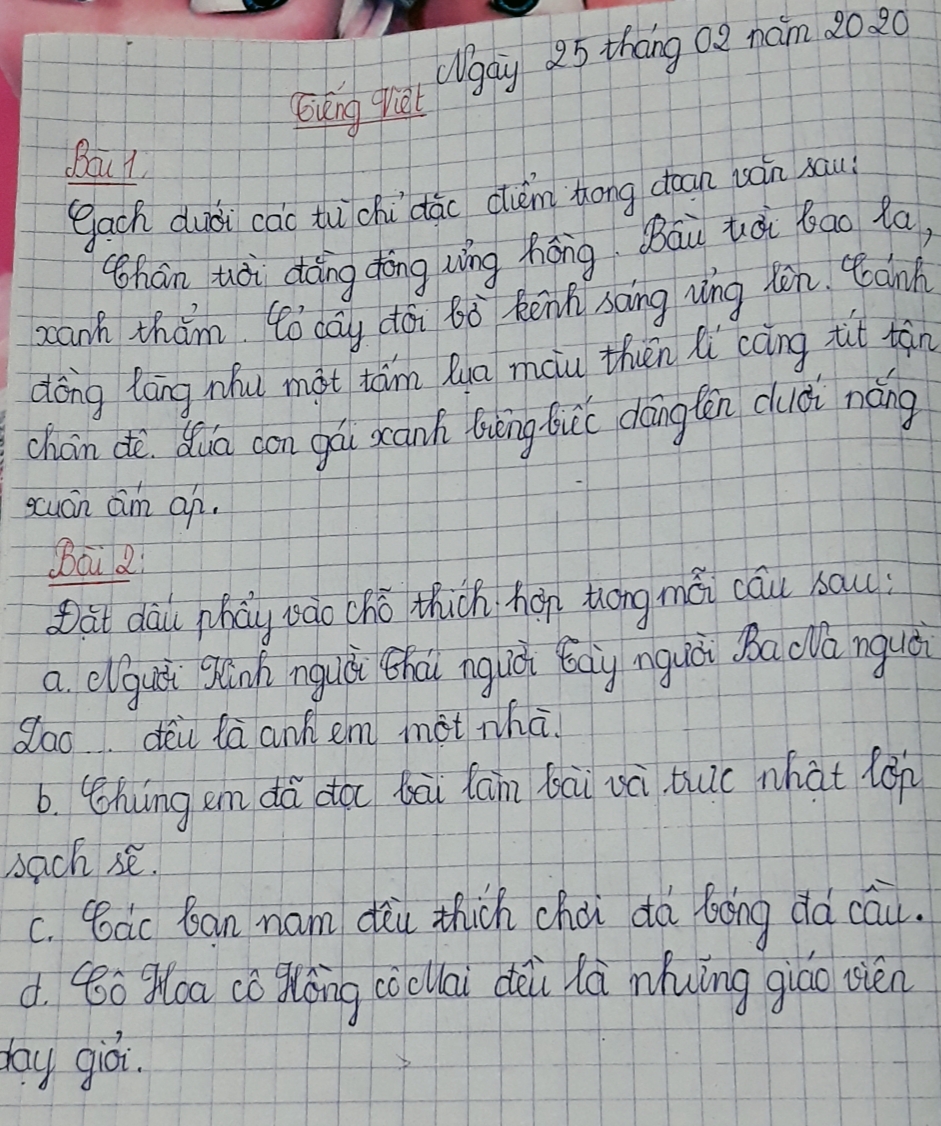 Ngày 25 tháng 02 năm 2020
Tiếng Việt
Bài 1.
Gạch dưới các từ chỉ đặc điểm trong đoạn văn sau:
Chân trời đằng đông ửng hồng. Bầu trời bao la,
xanh thẳm. Cỏ cây đôi bờ kênh sáng rừng lên. Cánh
đồng làng như một tấm lụa màu thiên lí căng tít tận
chân đê. Lúa con gái xanh biêng biếc dâng lên dưới nắng
xuân ấm áp.
Bài 2:
Đặt dấu phẩy vào chỗ thích hợp trong mỗi câu sau:
a. Người Kinh người Thái người Tày người Ba Na người
Dao ... đều là anh em một nhà.
b. Chúng em đã đọc bài làm bài và trực nhật lớp
sạch sẽ.
c. Các bạn nam đều thích chơi đá bóng đá cầu.
d. Cô Hoa cô Hồng cô Mai đều là những giáo viên
dạy giỏi.